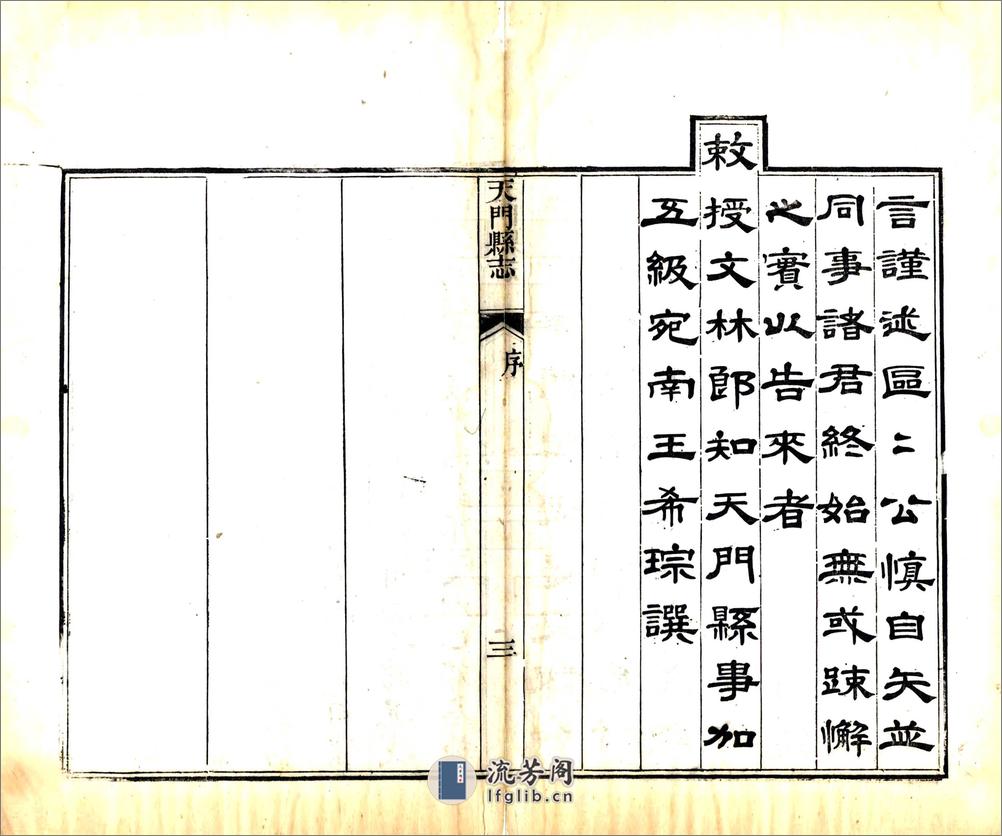 言謹述區〻公慎自矢並
同事諸君終始無或踈懈
之實以告來者
敕授文林郎知天門縣事加
五級宛南王希琮譔
天門縣志
序
三
流芳阁
lfglib.cn